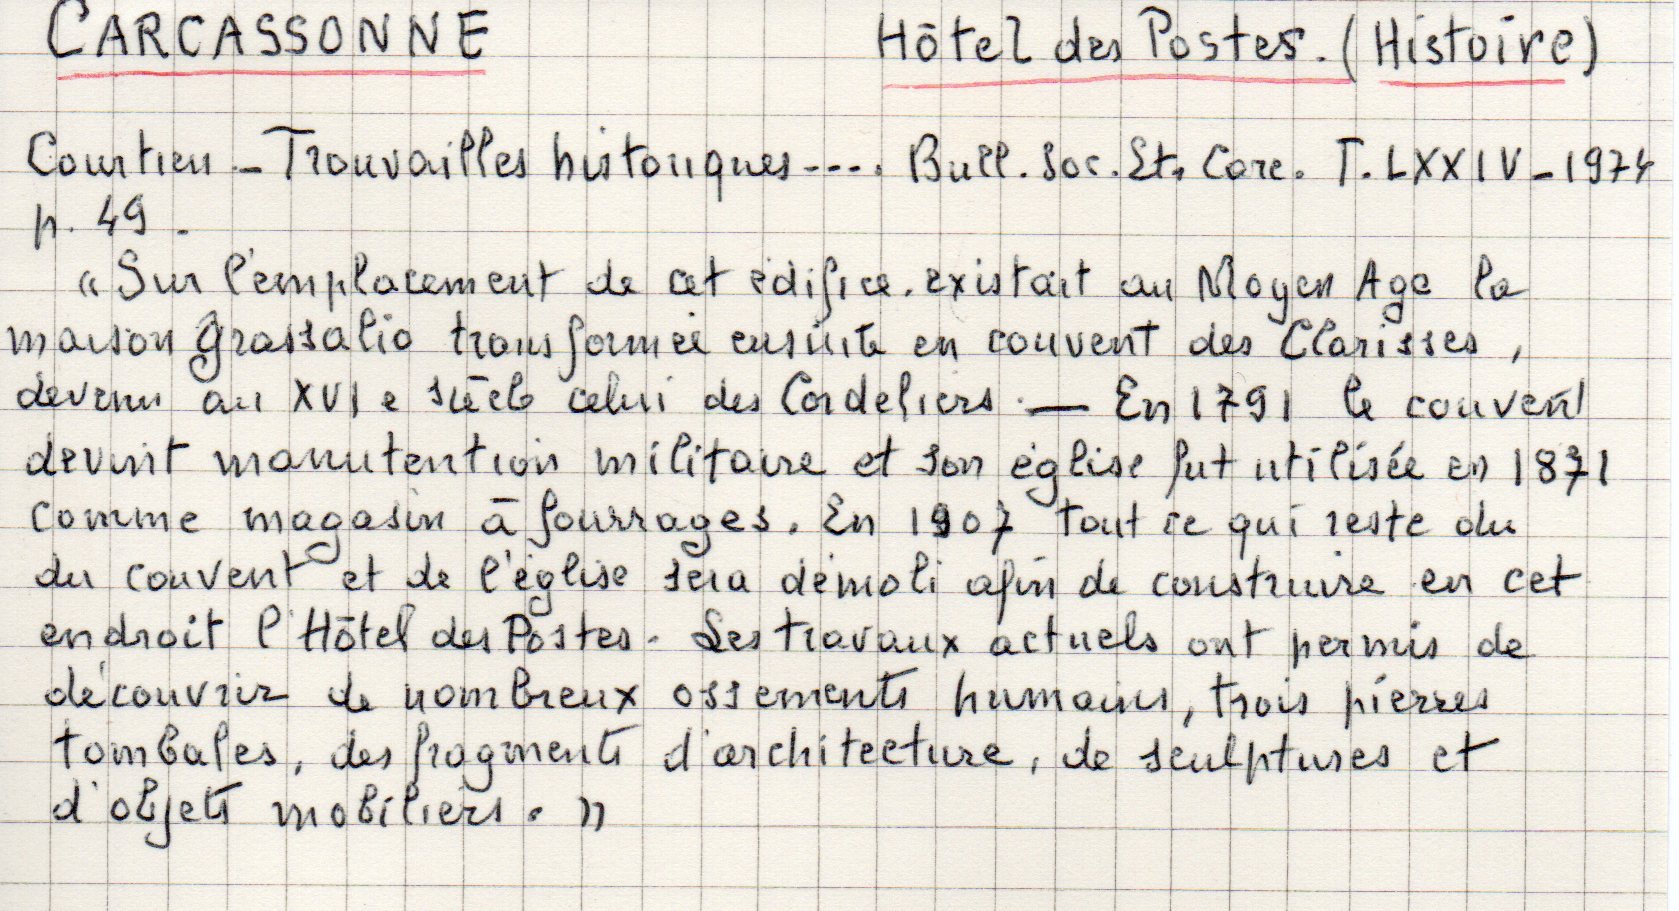 CARCASSONNE Hôtel des Postes. (Histoire)
Courtieu - Trouvailles historiques ---. Bull. Soc. Et. Carc. T. LXXIV - 1974
p. 49.
"Sur l'emplacement de cet édifice. existait au Moyen Age la
maison Grassalio transformée ensuite en couvent des Clarisses,
devenu au XVI e siècle celui des Cordeliers. — En 1791 le couvent
devint manutention militaire et son église fut utilisée en 1871
comme magasin à fourrages. En 1907 tout ce qui reste du
du couvent et de l'église sera démoli afin de construire en cet
endroit l'Hôtel des Postes. Les travaux actuels ont permis de
découvrir de nombreux ossements humains, trois pierres
tombales, des fragments d'architecture, de sculptures et
d'objets mobiliers. "